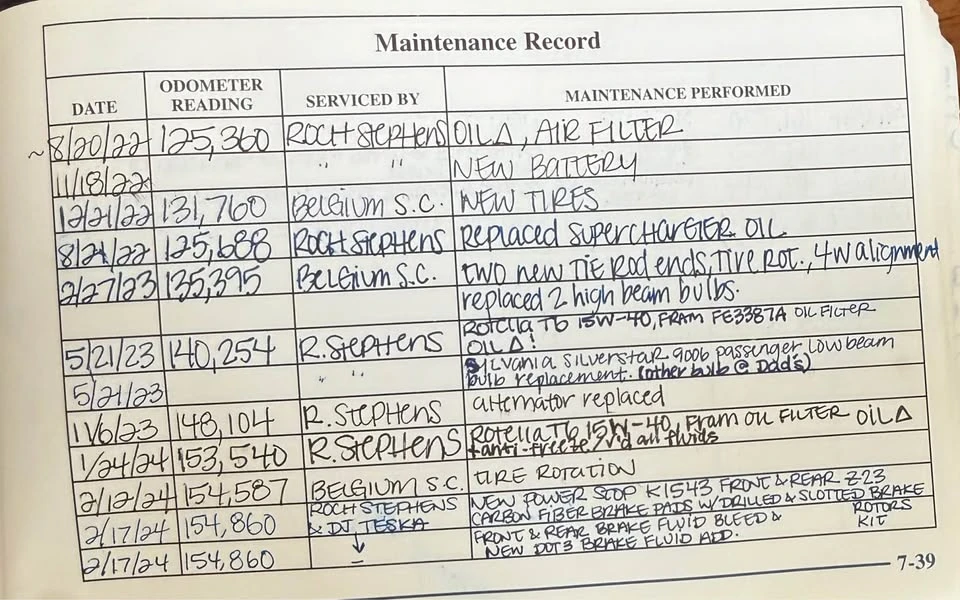 Maintenance Record
DATE ODOMETER READING SERVICED BY MAINTENANCE PERFORMED
~8/20/22 125,360 ROCH STEPHENS OIL Δ, AIR FILTER
11/18/22 " " NEW BATTERY
12/21/22 131,760 BELGIUM S.C. NEW TIRES
8/21/22 125,688 ROCH STEPHENS REPLACED SUPERCHARGER OIL
2/27/23 135,395 BELGIUM S.C. TWO new TIE ROD ends, TIRE ROT., 4W alignment
replaced 2 high beam bulbs.
Rotella T6 15W-40, FRAM FE3387A OIL FILTER
5/21/23 140,254 R. STEPHENS OIL Δ!
SYLVANIA SILVERSTAR 9006 passenger low beam
5/21/23 " " bulb replacement. (other bulb @ Dad's)
11/6/23 148,104 R. STEPHENS alternator replaced
1/24/24 153,540 R. STEPHENS Rotella T6 15W-40, Fram OIL FILTER OIL Δ
+anti-freeze / all fluids
2/12/24 154,587 BELGIUM S.C. TIRE ROTATION
2/17/24 154,860 ROCH STEPHENS NEW POWER STOP K1543 FRONT & REAR Z-23
& DJ TESKA CARBON FIBER BRAKE PADS W/DRILLED & SLOTTED BRAKE
ROTORS KIT
2/17/24 154,860 ↓ FRONT & REAR BRAKE FLUID BLEED &
– NEW DOT3 BRAKE FLUID ADD.
7-39